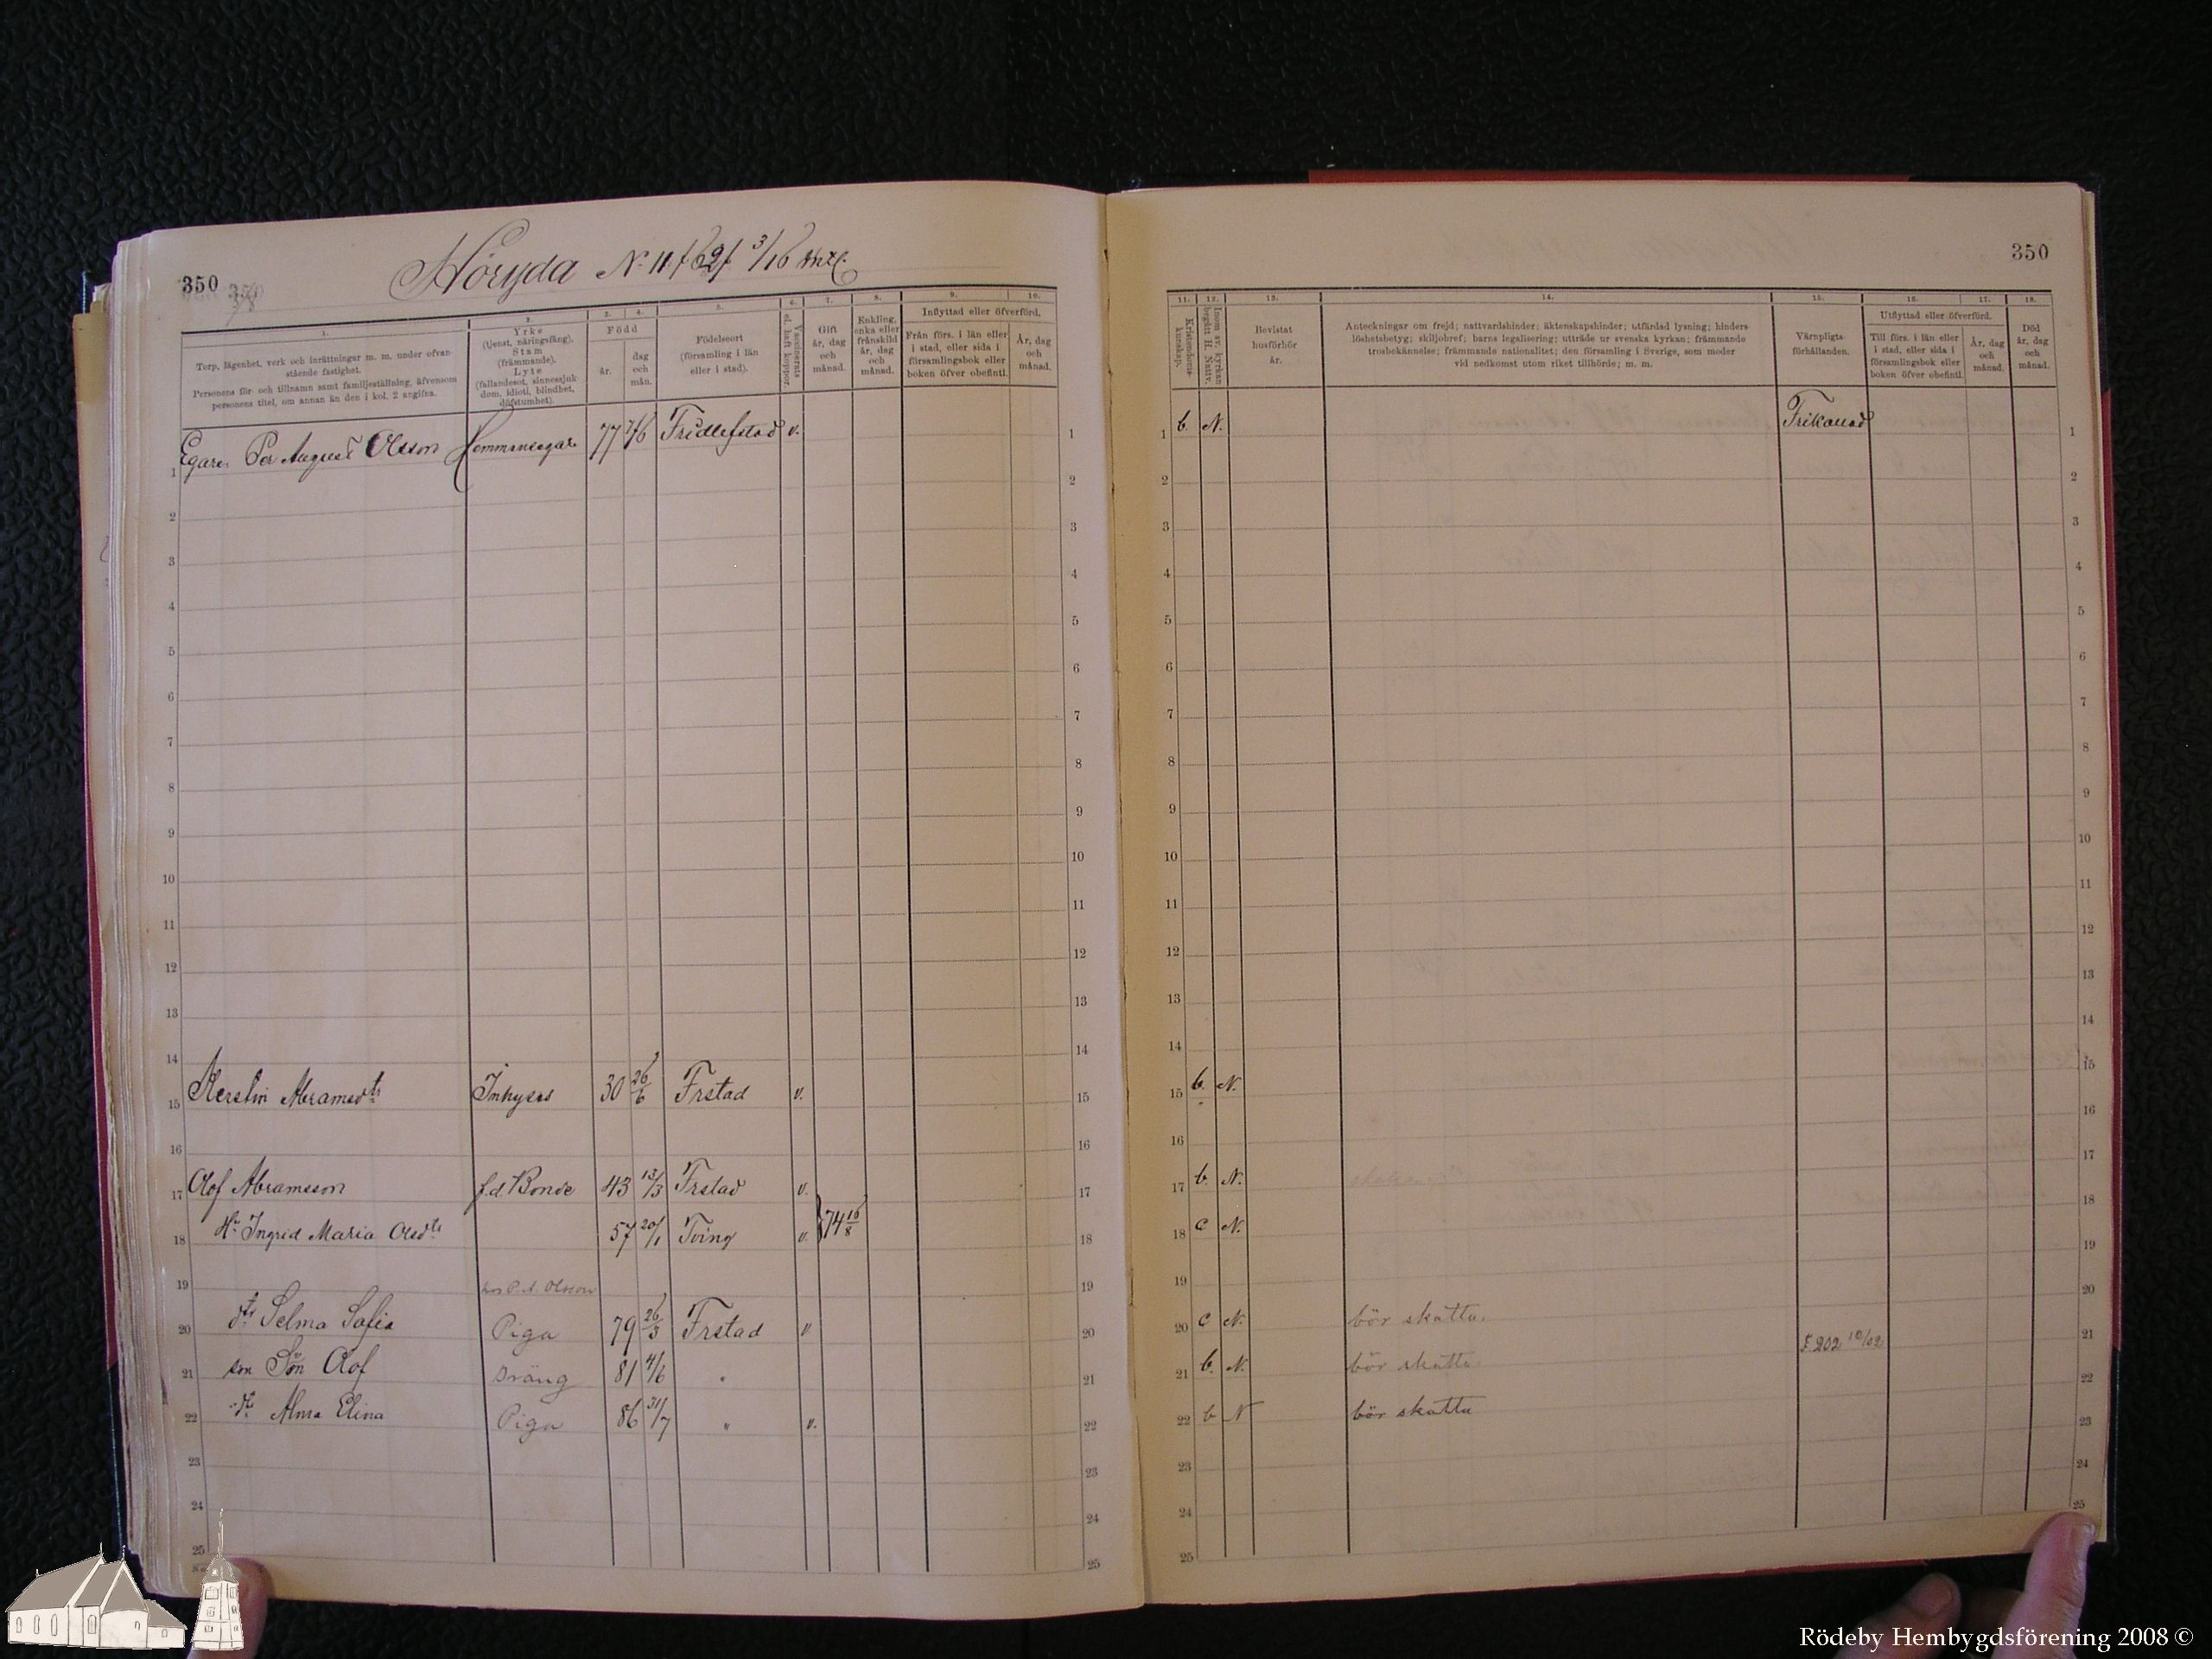 350
Höryda N. 11. f 62 f 3/16 mtl.
1.
Torp, lägenhet, verk och inrättningar m. m. under ofvan-
stående fastighet.
Personens för- och tillnamn samt familjeställning, äfvensom
personens titel, om annan än den i kol. 2 angifna.
2.
Yrke
(tjenst, näringsfång),
Stam
(främmande),
Lyte
(fallandesot, sinnessjuk-
dom, idioti, blindhet,
döfstumhet).
3. 4.
Född
år.
dag
och
mån.
5.
Födelseort
(församling i län
eller i stad).
6.
Vaccinerats
el. haft koppor.
7.
Gift
år, dag
och
månad.
8.
Enkling,
enka eller
frånskild
år, dag
och
månad.
9. 10.
Inflyttad eller öfverförd.
Från förs. i län eller
i stad, eller sida i
församlingsbok eller
boken öfver obefintl.
År, dag
och
månad.
Egare Per August Olsson Hemmansegare 77 7/6 Fridlefstad v. 1
1
2 2
3 3
4 4
5 5
6 6
7 7
8 8
9 9
10 10
11 11
12 12
13 13
14 14
15 Kerstin Abramsdtr Inhyses 30 26/6 Frstad v. 15
16 16
17 Olof Abramsson f.d. Bonde 43 13/3 Frstad v. 17
18 Hu Ingrid Maria Olsdtr 57 20/1 Tving v. 74 16/8 18
19 hos P. A. Olsson 19
20 dtr Selma Sofia Piga 79 26/3 Frstad v 20
21 son Sön Olof Dräng 81 4/6 " 21
22 dtr Alma Elina Piga 86 31/7 " v. 22
23 23
24 24
25 25
350
11.
Kristendoms-
kunskap.
12.
Inom sv. kyrkan
begått H. Nattv.
13.
Bevistat
husförhör
år.
14.
Anteckningar om frejd; nattvardshinder; äktenskapshinder; utfärdad lysning; hinders-
löshetsbetyg; skiljobref; barns legalisering; utträde ur svenska kyrkan; främmande
trosbekännelse; främmande nationalitet; den församling i Sverige, som moder
vid nedkomst utom riket tillhörde; m. m.
15.
Värnpligts-
förhållanden.
16. 17.
Utflyttad eller öfverförd.
Till förs. i län eller
i stad, eller sida i
församlingsbok eller
boken öfver obefintl.
År, dag
och
månad.
18.
Död
år, dag
och
månad.
1 b. N. Frikallad 1
2 2
3 3
4 4
5 5
6 6
7 7
8 8
9 9
10 10
11 11
12 12
13 13
14 14
15 b. N. 15
16 16
17 b. N. 17
18 c N. 18
19 19
20 c N. bör skatta. 20
21 b. N. bör skatta F. 202 10/02 21
22 b N bör skatta 22
23 23
24 24
25 25
Rödeby Hembygdsförening 2008 ©